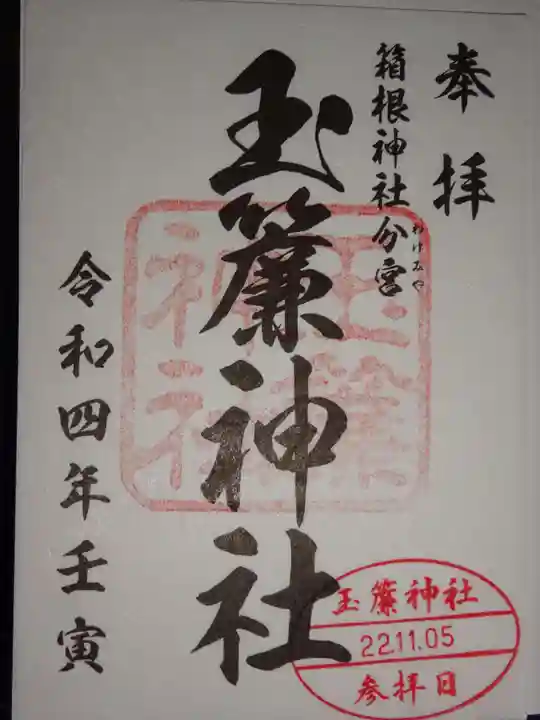 奉拝
箱根神社分宮
わけみや
玉簾神社
令和四年壬寅
玉簾神社
玉簾神社
22.11.05
参拝日